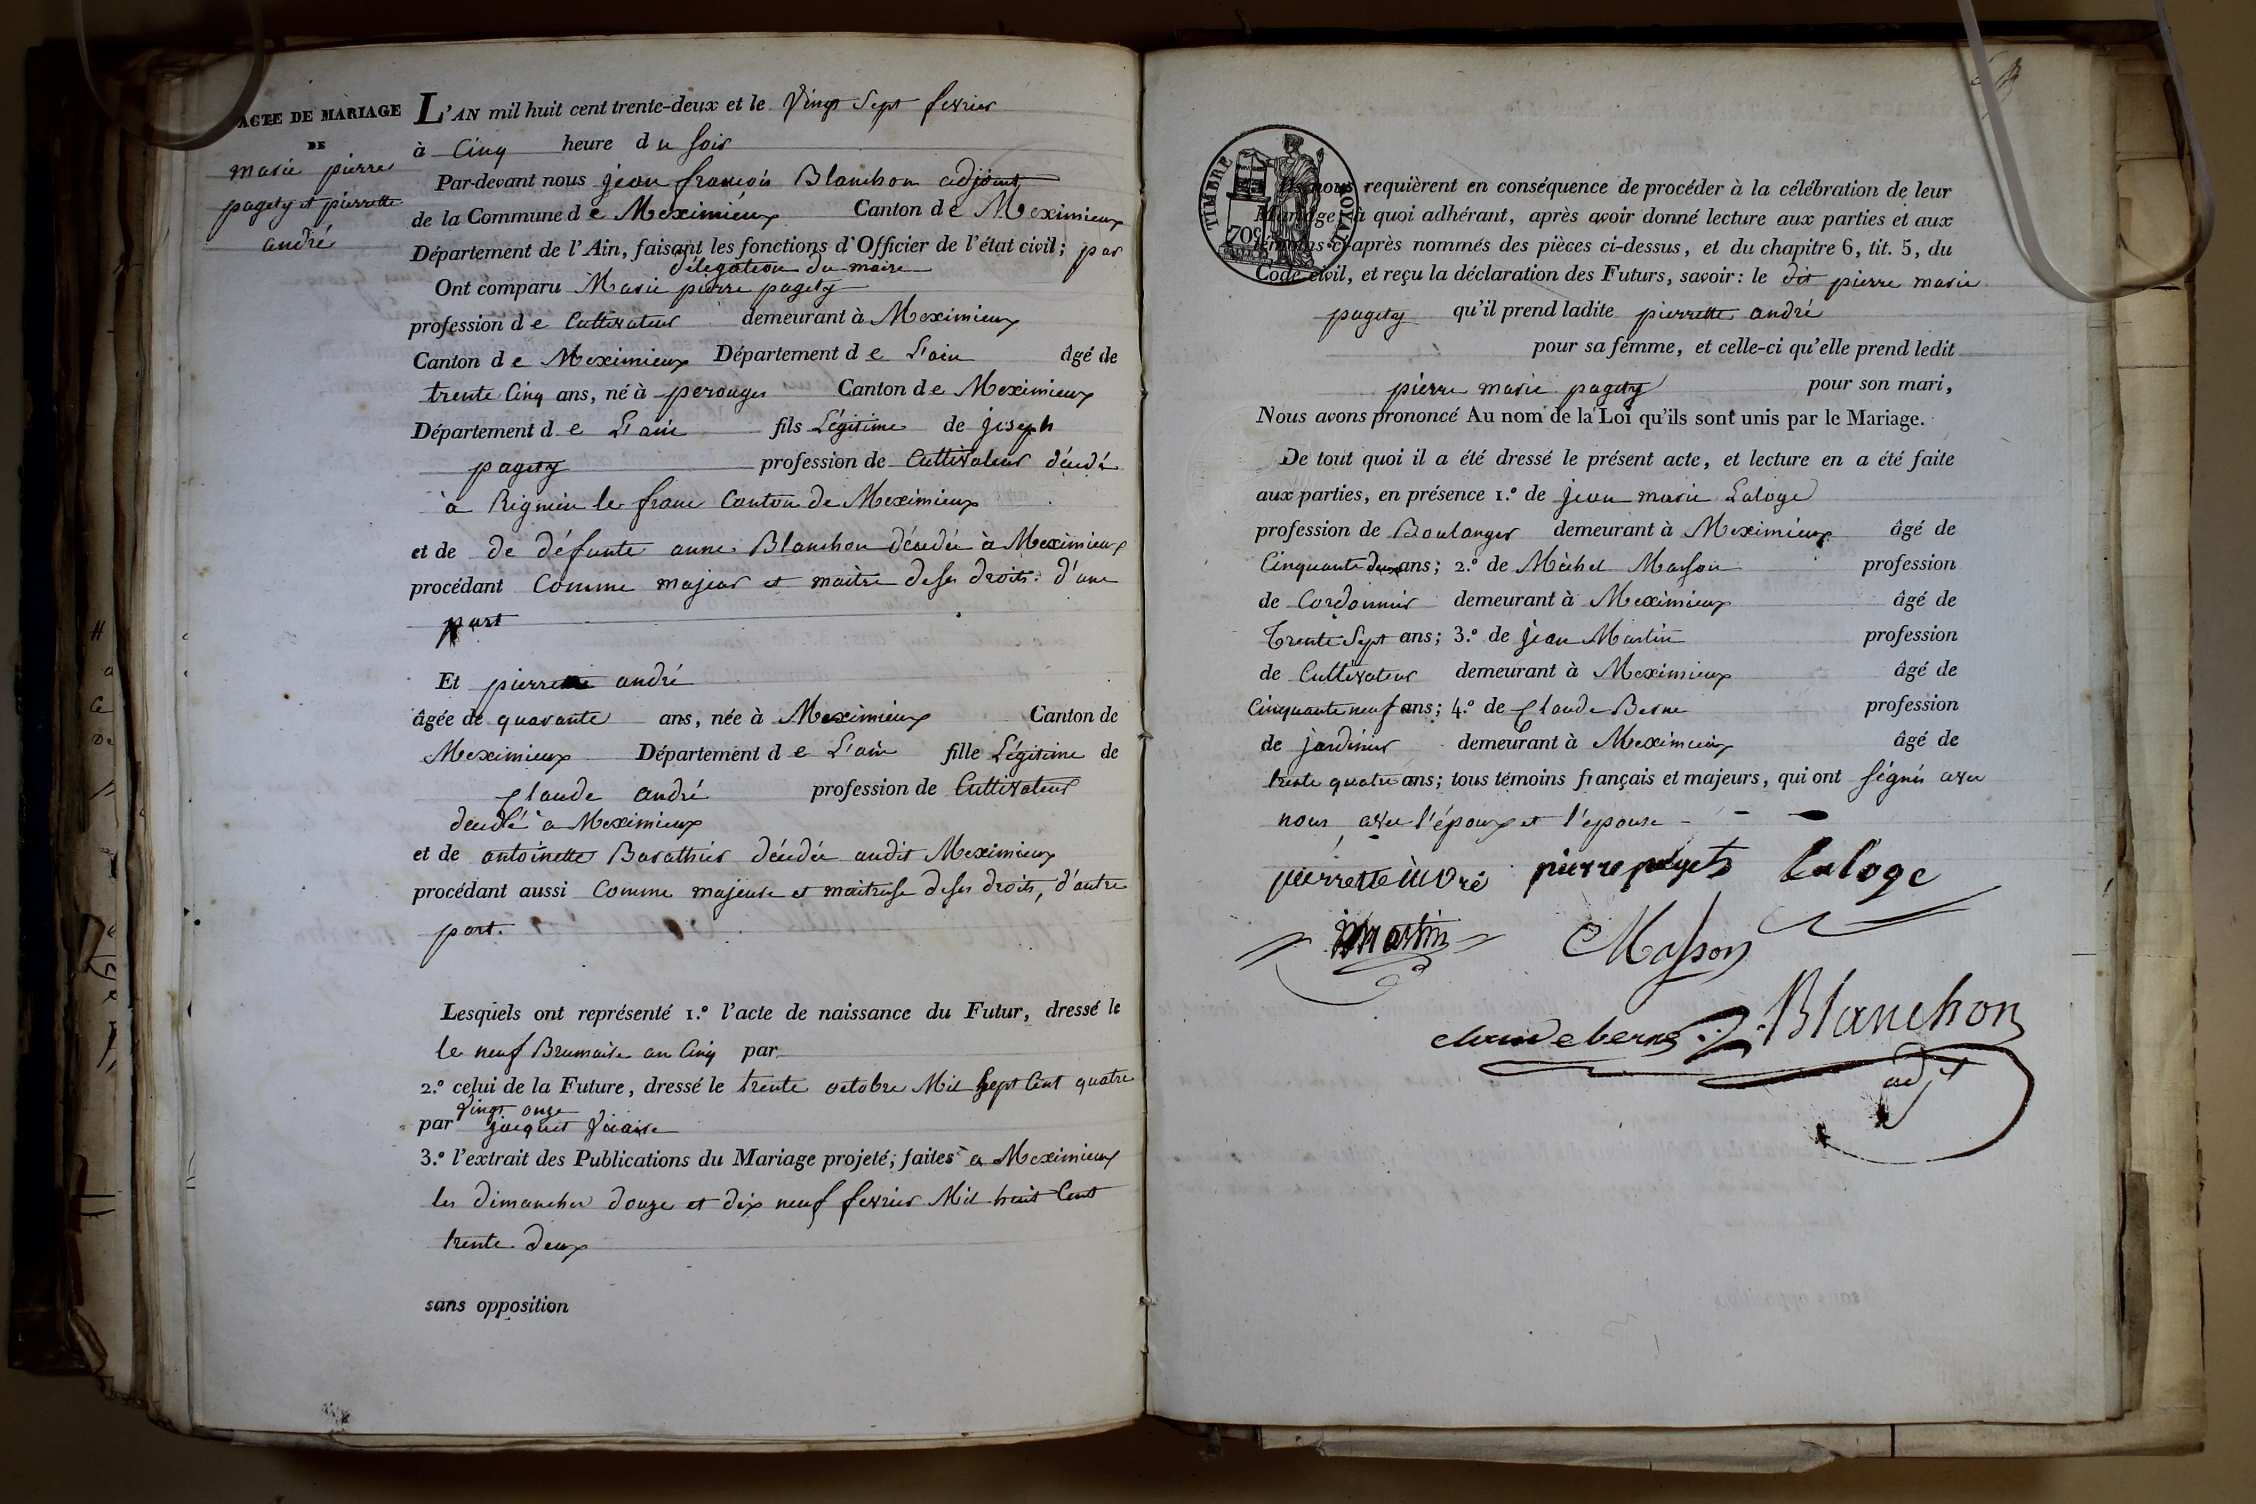 ACTE DE MARIAGE
DE
marie pierre
pagety et pierrette
andré
L'AN mil huit cent trente-deux et le Vingt Sept fevrier
à Cinq heure du Soir
Par-devant nous jean francois Blanchon adjoint
de la Commune de Meximieux Canton de Meximieux
Département de l'Ain, faisant les fonctions d'Officier de l'état civil; par
délégation du maire
Ont comparu Marie pierre pagety
profession de Cultivateur demeurant à Meximieux
Canton de Meximieux Département de L'ain âgé de
trente Cinq ans, né à perouges Canton de Meximieux
Département de L'ain fils Légitime de joseph
pagety profession de Cultivateur décédé
à Rignieu le franc Canton de Meximieux
et de de défunte anne Blanchon décédée à Meximieux
procédant Comme majeur et maitre de ses droits d'une
part
Et pierrette andré
âgée de quarante ans, née à Meximieux Canton de
Meximieux Département de L'ain fille Légitime de
Claude andré profession de Cultivateur
décédé a Meximieux
et de antoinette Barathier décédée audit Meximieux
procédant aussi Comme majeure et maitresse de ses droits, d'autre
part.
Lesquels ont représenté 1.° l'acte de naissance du Futur, dressé le
le neuf Brumaire an Cinq par
2.° celui de la Future, dressé le trente octobre Mil Sept Cent quatre
Vingt onze
par jacquet Vicaire
3.° l'extrait des Publications du Mariage projeté; faites a Meximieux
les dimanches douze et dix neuf fevrier Mil huit Cent
trente deux
sans opposition
TIMBRE ROYAL
70c
Ils nous requièrent en conséquence de procéder à la célébration de leur
Mariage, à quoi adhérant, après avoir donné lecture aux parties et aux
témoins ci-après nommés des pièces ci-dessus, et du chapitre 6, tit. 5, du
Code civil, et reçu la déclaration des Futurs, savoir: le dit pierre marie
pagety qu'il prend ladite pierrette andré
pour sa femme, et celle-ci qu'elle prend ledit
pierre marie pagety pour son mari,
Nous avons prononcé Au nom de la Loi qu'ils sont unis par le Mariage.
De tout quoi il a été dressé le présent acte, et lecture en a été faite
aux parties, en présence 1.° de jean marie Laloge
profession de Boulanger demeurant à Meximieux âgé de
Cinquante deux ans; 2.° de Michel Masson profession
de Cordonnier demeurant à Meximieux âgé de
Trente Sept ans; 3.° de jean Martin profession
de Cultivateur demeurant à Meximieux âgé de
Cinquante neuf ans; 4.° de Claude Berne profession
de jardinier demeurant à Meximieux âgé de
trente quatre ans; tous témoins français et majeurs, qui ont signés avec
nous avec l'époux et l'epouse
pierrette andré pierre pagety Laloge
Martin Masson
claude berne Blanchon
adjt